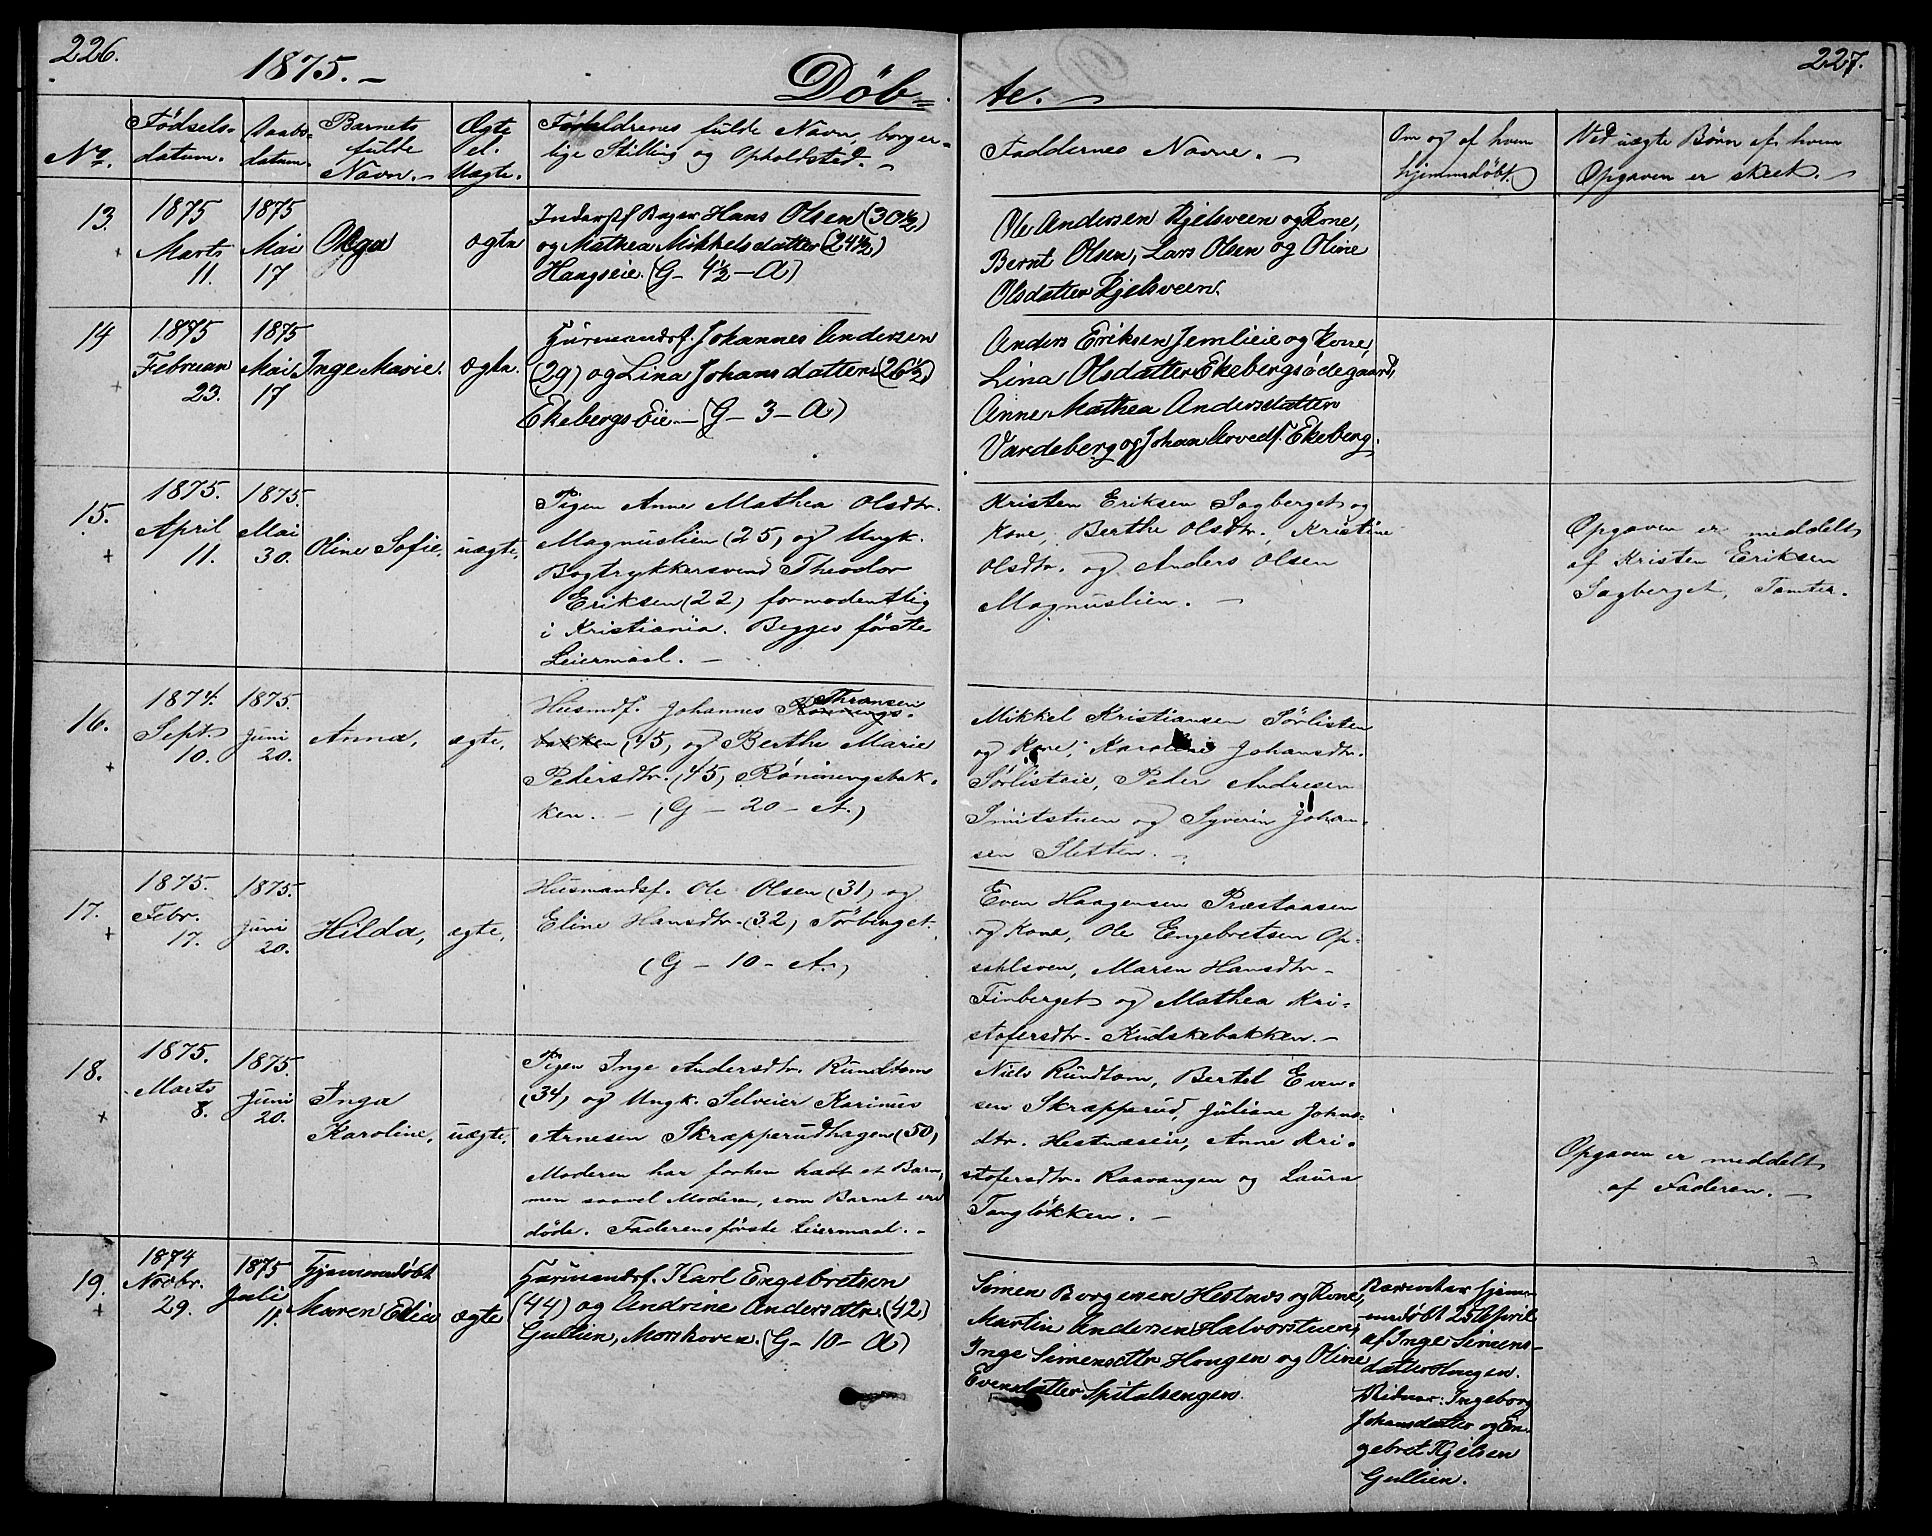 226.
1875. –
Døb=
te. –
227.
No.
Fødsels-
datum.
Daabs-
datum.
Barnets
fulde
Navn. –
Ægte
el.
Uægte.
Forældrenes fulde Navn, borger-
lige Stilling og Opholdsted. –
Faddernes Navne. –
Om og af hvem
hjemmedøbt.
Ved uægte Børn af hvem
Opgaven er skeet. –
13.
+
1875
Marts
11.
1875
Mai
17
Olga
ægte
Inderst f Bager Hans Olsen (30½)
og Mathea Mikkelsdatter (24½)
Haugseie. (G – 4½ – A)
Ole Andersen Kjelsveen og Kone,
Bernt Olsen, Lars Olsen og Oline
Olsdatter Kjelsveen.
14
+
1875
Februar
23.
1875
Mai
17
Inge Marie.
ægte.
Husmandsf. Johannes Andersen
(29) og Lina Johansdatter (26½)
Ekebergs Eie. – (G – 3 – A)
Anders Eriksen Jemlieie og Kone,
Lina Olsdatter Ekebergsødegaard,
Anne Mathea Andersdatter
Vardeberg og Johan Arvedsf. Ekeberg.
15.
+
1875.
April
11.
1875.
Mai
30.
Oline Sofie,
uægte,
Pigen Anne Mathea Olsdtr.
Magnuslien (25) og Ungk.
Bogtrykkersvend Theodor
Eriksen (22) formodentlig
i Kristiania. Begges første
Leiermaal. –
Kristen Eriksen Sagberget og
Kone, Berthe Olsdtr., Kristine
Olsdtr. og Anders Olsen
Magnuslien. –
Opgaven er meddelt
af Kristen Eriksen
Sagberget, Tomter.
16.
+
1874.
Sept.
10.
1875.
Juni
20.
Anna,
ægte,
Thransen
Husmdf. Johannes Rønnings-
bakken (45) og Berthe Marie
Pedersdtr. (45) Rønningsbak-
ken. – (G – 20 – A.)
Mikkel Kristiansen Sørlisten
og Kone, Karoline Johansdtr.
Sørlisteie, Peder Andresen
Smitstuen og Syverin Johan-
sen Sletten. –
17.
+
1875.
Febr.
17.
1875.
Juni
20.
Hilda,
ægte,
Husmandsf. Ole Olsen (31) og
Eline Hansdtr. (32) Torberget.
(G – 10 – A.)
Even Haagensen Præstaasen
og Kone, Ole Engebretsen Op-
sahlsven, Maren Hansdtr.
Finberget og Mathea Kri-
stofersdtr. Kudskebakken. –
18.
+
1875.
Marts
8.
1875.
Juni
20.
Inga
Karoline,
uægte,
Pigen Inge Andersdtr. Rundtom
(34) og Ungk. Selveier Karinus
Arnesen Skrapperudhagen (50)
Moderen har forhen havt et Barn,
men saavel Moderen, som Barnet ere
døde. Faderens første Leiermaal. –
Niels Rundtom, Bertel Even-
sen Skrapperud, Juliane Johns-
dtr. Hestnæseie, Anne Kri-
stofersdtr. Raavangen og Laura
Tangløkken. –
Opgaven er meddelt
af Faderen. –
19.
+
1874
Novbr.
29.
1875
Juli
11.
Hjemmedøbt
Maren Elia
ægte
Husmandsf. Karl Engebretsen
(44) og Andrine Andersdtr. (42)
Gullien, Morskoven. (G – 10 – A)
Simen Borgersen Hestnes og Kone,
Martin Andersen Halvorstuen,
Inge Simensdtr Hougen og Oline
Evensdatter Spitalsengen.
Barnet har hjem-
medøbt 25 April
af Inge Simens-
datter Hougen.
Vidner: Ingeborg
Johansdatter og En-
gebret Kjelsen
Gullien.